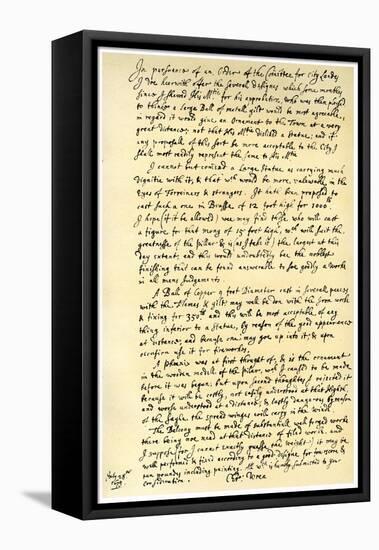 In pursuance of an Order of the Comittee for City Landes
I doe heerwith offer the severall designes which some monthes
since I shewed His Matie for his approbation, who was then pleased
to thinke a large Ball of metall gilt would be most agreeable,
in regard it would give an Ornament to the Town at a very
great distance; not that His Matie disliked a Statue; and if
any proposall of this sort be more acceptable to the City I
shall most readily represent the same to his Matie
I cannot but comend a large Statue as carrying much
dignitie with it, & that wch would be more vallewable in the
Eyes of Forreiners & strangers. It hath been proposed to
cast such a one in Brasse of 12 foot high for 1000lb
I hope (if it be allowed) wee may find those who will cast
a figure for that mony of 15 foot high, wch will suit the
greatnesse of the pillar & is (as I take it) the largest at this
day extant; and this would undoubtedly bee the noblest
finishing that can be found answerable to soe goodly a worke
in all mens Judgements.
A Ball of Copper 9 foot Diameter cast in severall peeces
with the Flames & gilt, may well be don with the Iron worke
& fixing for 350lb and this will be most acceptable of any
thing inferior to a Statue, by reason of the good appearance
at distance, and because one may goe up into it; & upon
occasion use it for fireworkes.
A phoenix was at first thought of, & is the ornament
in the wooden modell of the pillar, wch I caused to be made
before it was began, but upon second thoughtes I rejected it
because it will be costly, not easily understood at that Highth,
and worse understood at a distance; & lastly dangerous by reason
of the sayle the spread winges will carry in the Wind.
The Balcony must be made of substantiall well forged worke
there being noe need at that distance of filed worke, and
I suppose (for I cannot exactly guesse the weight) it may be
well performed & fixed according to a good designe for fourscore &
ten poundes including painting. All wch is humbly submitted to your
consideration.
July 28th
Chr. Wren